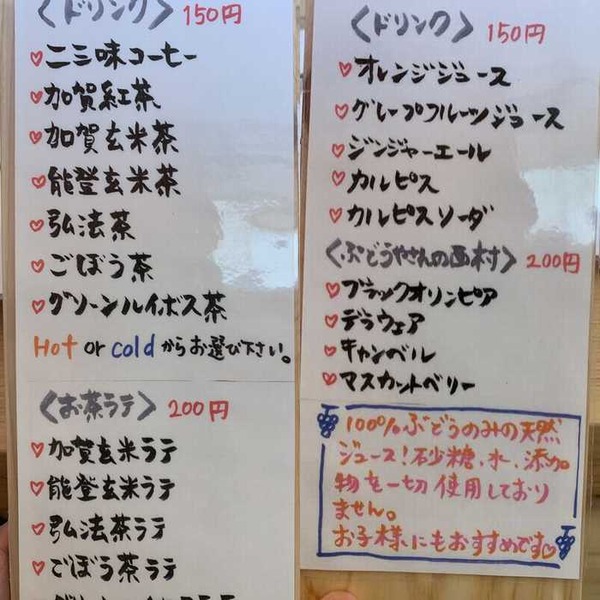 〈ドリンク〉150円
♡二三味コーヒー
♡加賀紅茶
♡加賀玄米茶
♡能登玄米茶
♡弘法茶
♡ごぼう茶
♡グリーンルイボス茶
Hot or coldからお選び下さい。
〈お茶ラテ〉200円
♡加賀玄米ラテ
♡能登玄米ラテ
♡弘法茶ラテ
♡ごぼう茶ラテ
〈ドリンク〉150円
♡オレンジジュース
♡グレープフルーツジュース
♡ジンジャーエール
♡カルピス
♡カルピスソーダ
〈ぶどうやさんの西村〉200円
♡ブラックオリンピア
♡デラウェア
♡キャンベル
♡マスカットベリー
100%ぶどうのみの天然
ジュース!砂糖、水、添加
物を一切使用しており
ません。
お子様にもおすすめです♡